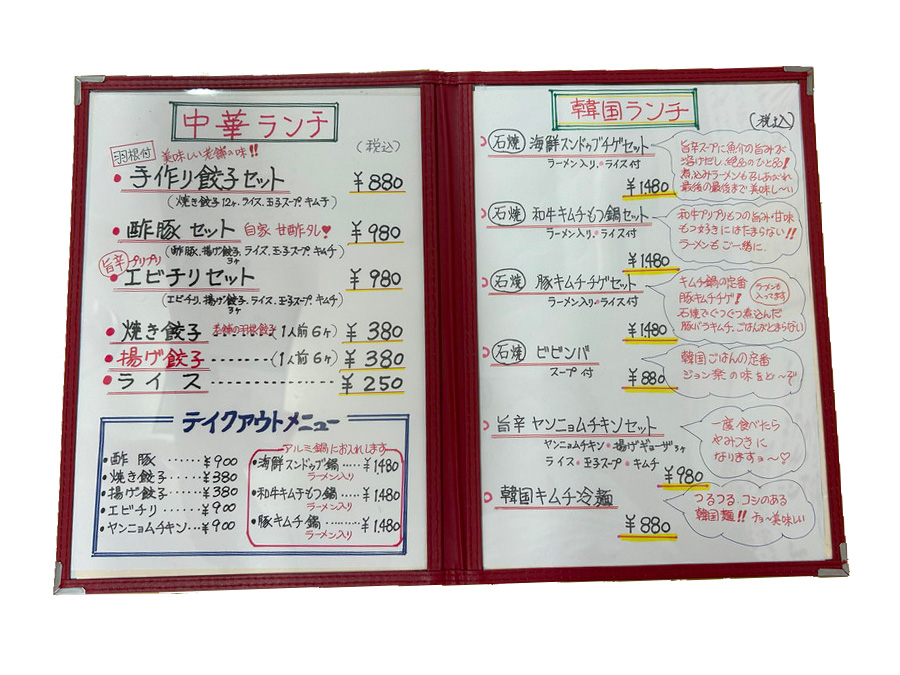 中華ランチ
(税込)
羽根付 美味しい老舗の味!!
・手作り餃子セット ¥880
(焼き餃子12ヶ.ライス.玉子スープ.キムチ)
・酢豚セット 自家甘酢タレ♥ ¥980
(酢豚、揚げ餃子、ライス、玉子スープ、キムチ)
3ヶ
旨辛 プリプリ
・エビチリセット ¥980
(エビチリ、揚げ餃子、ライス、玉子スープ、キムチ)
3ヶ
・焼き餃子 老舗の羽根餃子 (1人前6ヶ) ¥380
・揚げ餃子 -------(1人前6ヶ) ¥380
・ライス ------------- ¥250
テイクアウトメニュー
・酢豚 ······¥900
・焼き餃子······¥380
・揚げ餃子······¥380
・エビチリ ·····¥900
・ヤンニョムチキン···¥900
アルミ鍋にお入れします
・海鮮スンドゥブ鍋 ····¥1480
ラーメン入り
・和牛キムチもつ鍋 ····¥1480
ラーメン入り
・豚キムチ鍋 ········¥1.480
ラーメン入り
韓国ランチ
(税込)
石焼 海鮮スンドゥブチゲセット
ラーメン入り・ライス付
¥1480
旨辛スープに魚介の旨みが
溶けだし、絶品のひと品!
煮込みラーメンも召しあがれ
最後の最後まで美味し〜い
石焼 和牛キムチもつ鍋セット
ラーメン入り・ライス付
¥1480
和牛プリプリもつの旨み・甘味
もつ好きにはたまらない!!
ラーメンもご一緒に.
石焼 豚キムチチゲセット
ラーメン入り・ライス付
¥1480
キムチ鍋の定番
豚キムチチゲ!
石焼でぐつぐつ煮込んだ
豚バラキムチ、ごはんがとまらない
ラーメンも
入ってます
石焼 ビビンバ
スープ付
¥880
韓国ごはんの定番
ジョン家の味をど〜ぞ
旨辛ヤンニョムチキンセット
ヤンニョムチキン・揚げギョーザ3ヶ
ライス・玉子スープ・キムチ
¥980
一度食べたら
やみつきに
なりますョ〜♡
韓国キムチ冷麺
¥880
つるつる、コシのある
韓国麺!! チョ〜美味しい